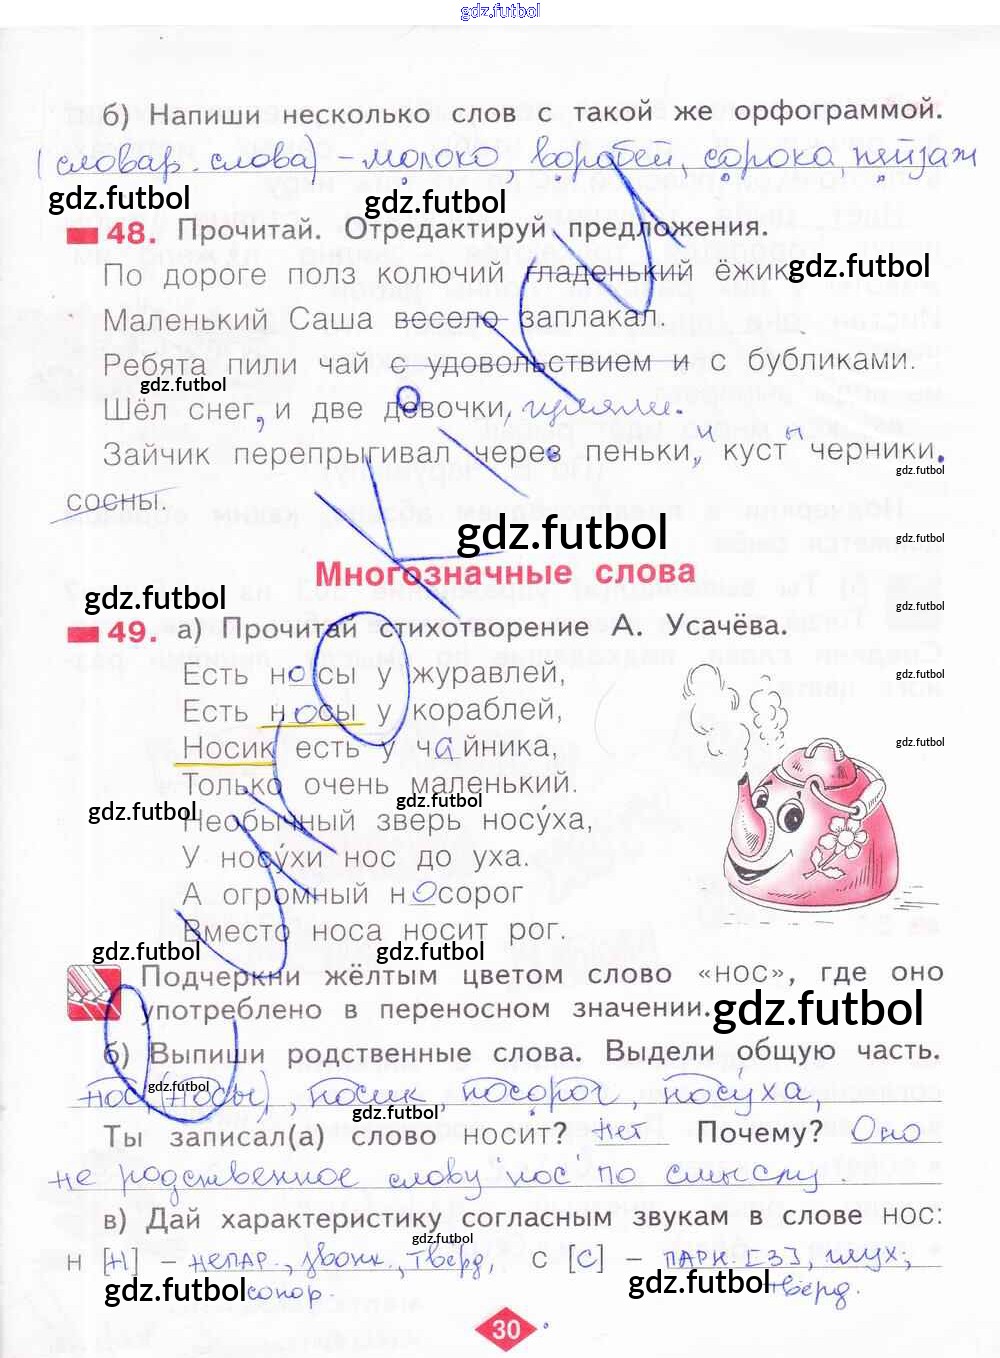 gdz.futbol
б) Напиши несколько слов с такой же орфограммой.
(словар. слова) - молоко, воробей, сорока, пейзаж
gdz.futbol gdz.futbol
48. Прочитай. Отредактируй предложения.
По дороге полз колючий гладенький ёжик.
gdz.futbol
Маленький Саша весело заплакал.
Ребята пили чай с удовольствием и с бубликами.
gdz.futbol
Шёл снег, и две девочки гуляли.
Зайчик перепрыгивал через пеньки, куст черники,
gdz.futbol
сосны.
gdz.futbol
gdz.futbol
Многозначные слова
gdz.futbol gdz.futbol
49. а) Прочитай стихотворение А. Усачёва.
Есть носы у журавлей,
gdz.futbol
Есть носы у кораблей,
Носик есть у чайника,
gdz.futbol
Только очень маленький.
gdz.futbol gdz.futbol
Необычный зверь носу́ха,
У носу́хи нос до уха.
А огромный носорог
Вместо носа носит рог.
gdz.futbol gdz.futbol
Подчеркни жёлтым цветом слово «нос», где оно
употреблено в переносном значении.
gdz.futbol
б) Выпиши родственные слова. Выдели общую часть.
gdz.futbol
нос, (носы), носик, носорог, носуха,
gdz.futbol
Ты записал(а) слово носит? Нет Почему? Оно
не родственное слову "нос" по смыслу.
в) Дай характеристику согласным звукам в слове нос:
gdz.futbol
н [н] - непар., звонк., твёрд, с [с] - парн. [з], глух,
gdz.futbol сонор. gdz.futbol твёрд.
30